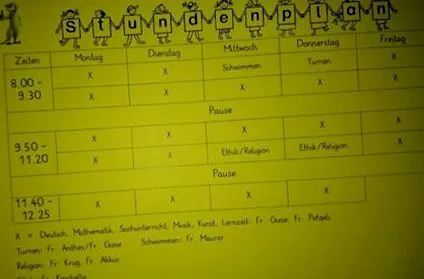 Stundenplan
Zeiten Montag Dienstag Mittwoch Donnerstag Freitag
8.00 - 9.30 X X Schwimmen Turnen X
X X X X X
Pause
9.50 - 11.20 X X X X X
X X Ethik/Religion Ethik/Religion X
Pause
11.40 - 12.25 X X X X
X = Deutsch, Mathematik, Sachunterricht, Musik, Kunst, Lernzeit: Fr. Giese, Fr.
Turnen: Fr. Anthes/Fr. Giese Schwimmen: Fr. Maurer
Religion: Fr. Krug, Fr. Akkus